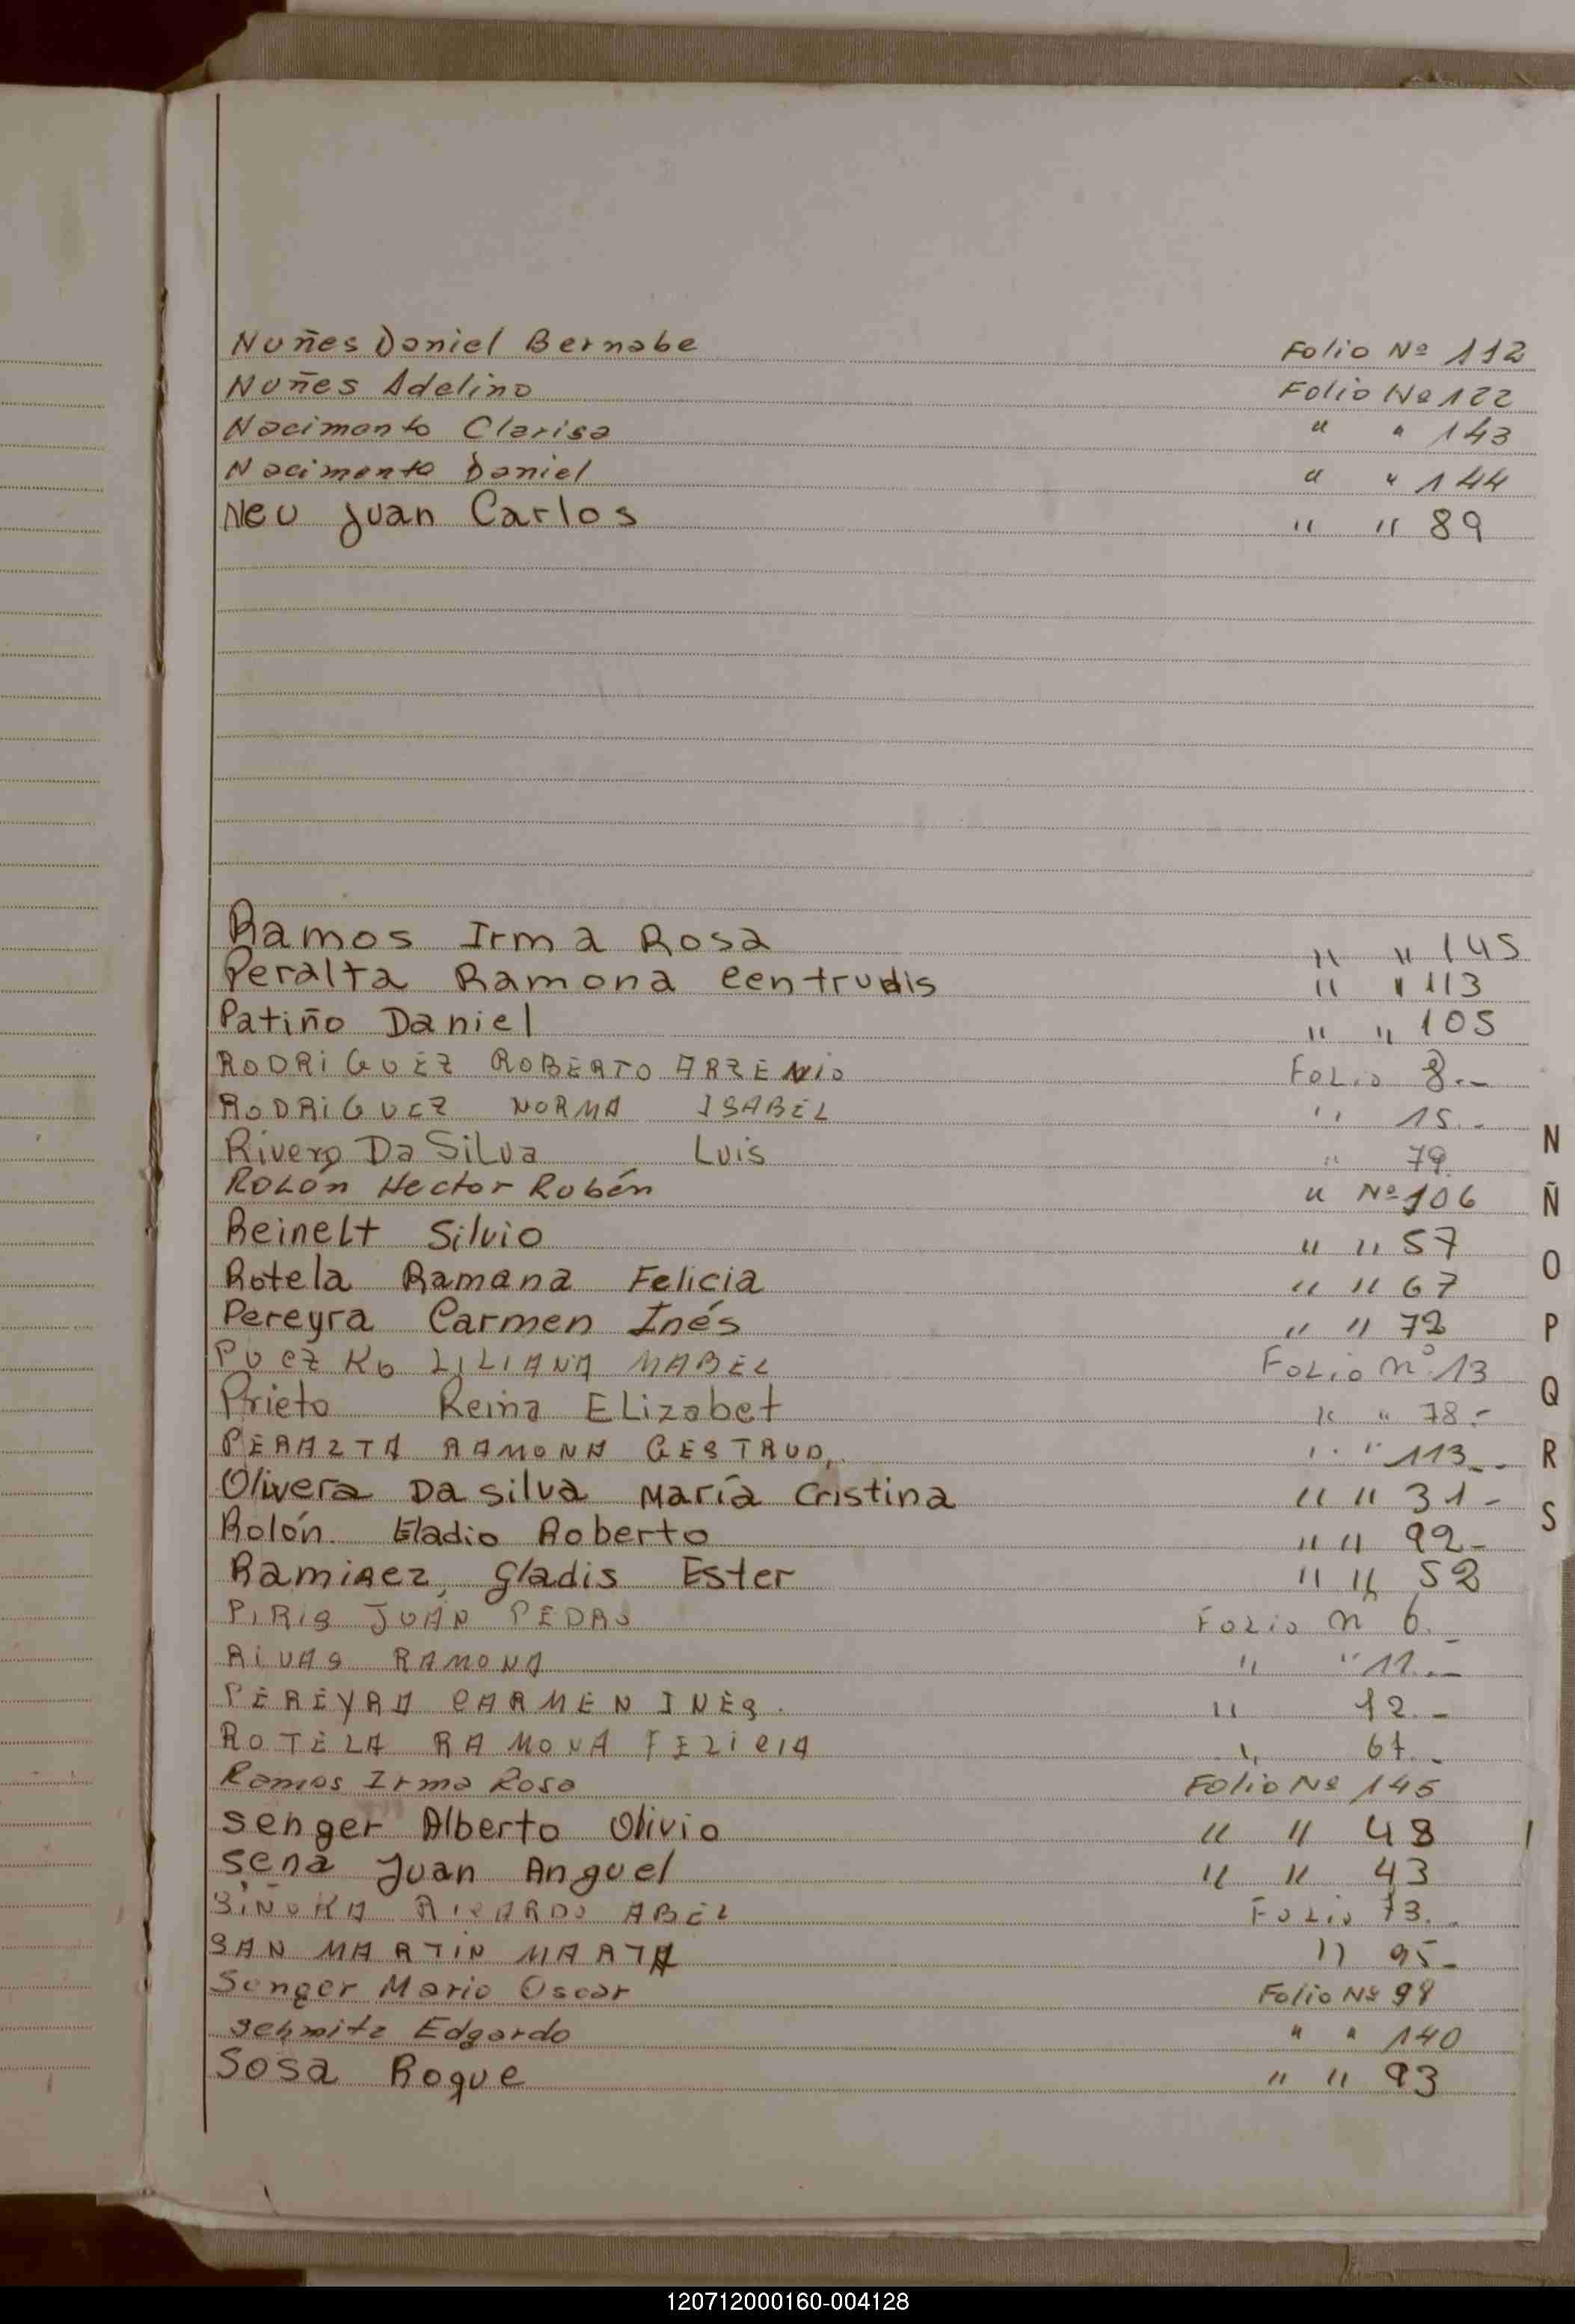 Nuñes Daniel Bernabe Folio Nº 112
Nuñes Adelino Folio Nº 122
Nacimento Clarisa " " 143
Nacimento Daniel " " 144
Neu Juan Carlos " " 89
Ramos Irma Rosa " " 145
Peralta Ramona Centrudis " " 113
Patiño Daniel " " 105
RODRIGUEZ ROBERTO ARZENIO FOLIO 8.-
RODRIGUEZ NORMA ISABEL " 15.-
Rivero Da Silva Luis " 79.
Rolón Hector Rubén " Nº 106
Reinelt Silvio " " 57
Rotela Ramana Felicia " " 67
Pereyra Carmen Inés " " 72
PUCZKO LILIANA MABEL FOLIO Nº 13
Prieto Reina Elizabet " " 78.-
PERALTA RAMONA GESTRUD. " " 113.-
Olivera Da Silva María Cristina " " 31-
Rolón Eladio Roberto " " 92-
Ramirez, Gladis Ester " " 52
PIRIS JUAN PEDRO FOLIO Nº 6.-
RIVAS RAMONA " " 11.-
PEREYRA CARMEN INES. " 72.-
ROTELA RAMONA FELICIA " 67.-
Ramos Irma Rosa Folio Nº 145
Senger Alberto Olivio " " 48
Sena Juan Anguel " " 43
SIÑUKA RICARDO ABEL FOLIO 73.-
SAN MARTIN MARTA " 95-
Senger Mario Oscar Folio Nº 98
Schmitz Edgardo " " 140
Sosa Roque " " 93
N
Ñ
O
P
Q
R
S
120712000160-004128